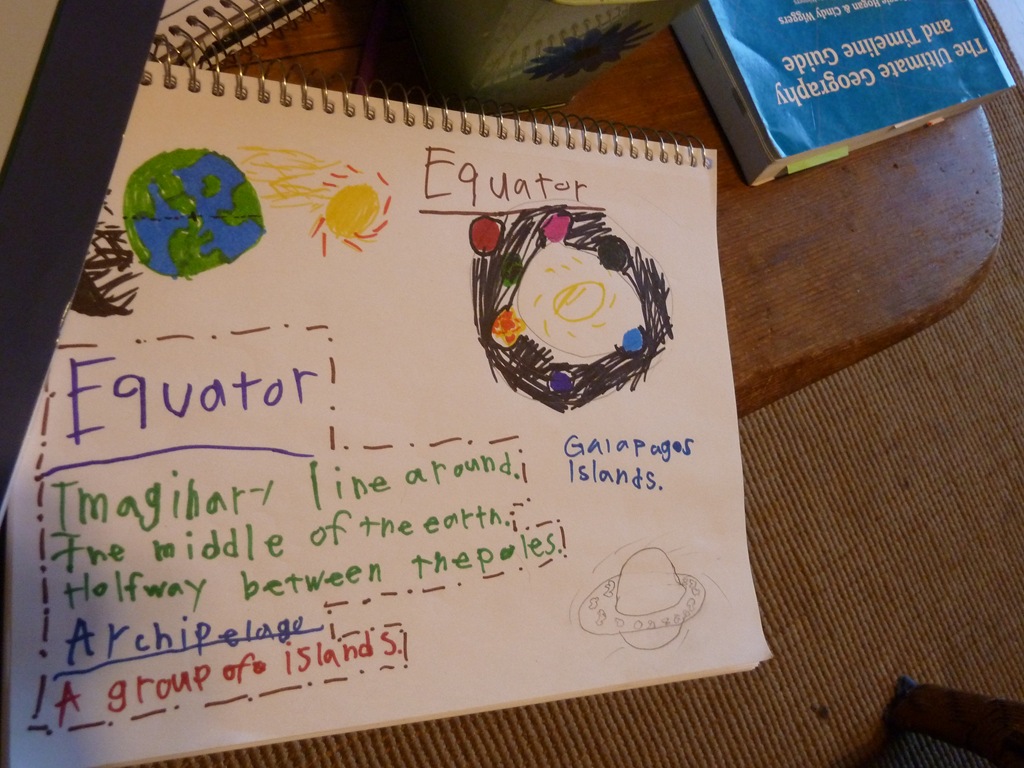 Equator
Equator
Imaginary line around.
The middle of the earth.
Halfway between the poles.
Archipelago
A group of islands.
Galapagos
Islands.
The Ultimate Geography
and Timeline Guide
Hogan & Cindy Wiggers